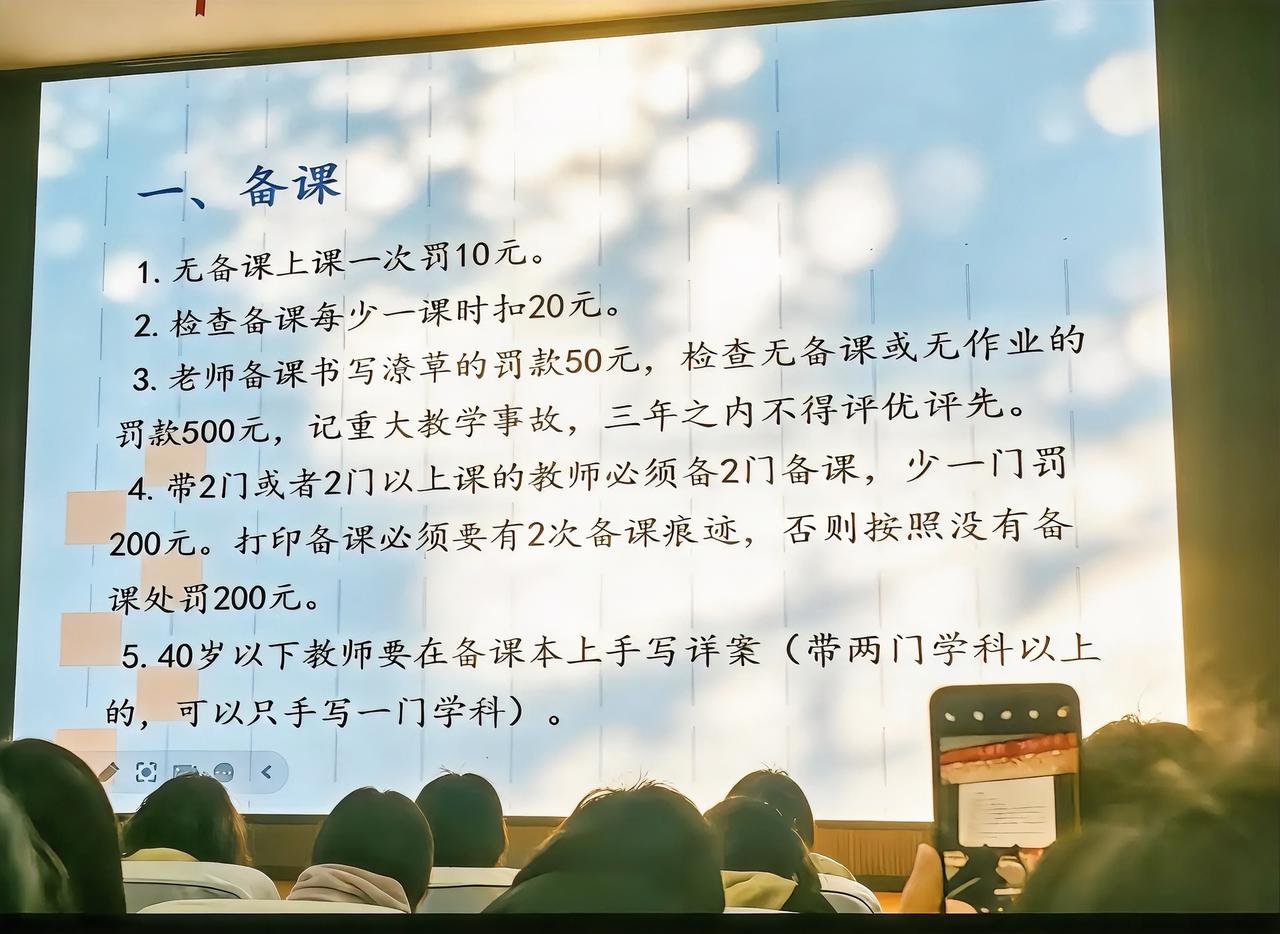 一、备课
1. 无备课上课一次罚10元。
2. 检查备课每少一课时扣20元。
3. 老师备课书写潦草的罚款50元，检查无备课或无作业的
罚款500元，记重大教学事故，三年之内不得评优评先。
4. 带2门或者2门以上课的教师必须备2门备课，少一门罚
200元。打印备课必须要有2次备课痕迹，否则按照没有备
课处罚200元。
5. 40岁以下教师要在备课本上手写详案（带两门学科以上
的，可以只手写一门学科）。